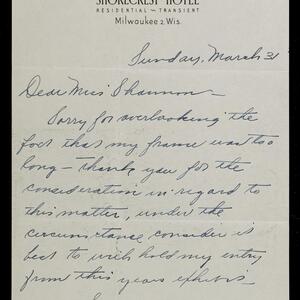 SHORECREST HOTEL
RESIDENTIAL - TRANSIENT
Milwaukee 2, Wis.
Sunday, March 31
Dear Miss Shannon -
Sorry for overlooking the
fact that my frame was too
long - thank you for the
consideration in regard to
this matter, under the
circumstance consider is
best to with hold my entry
from this years exhibit -